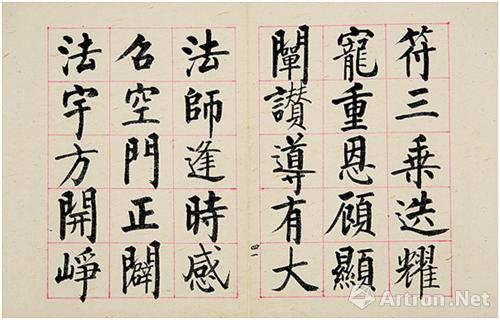 符三乗迭耀
寵重恩顧顯
闡讚導有大
四一
法師逢時感
召空門正闢
法宇方開崢
Artron.Net